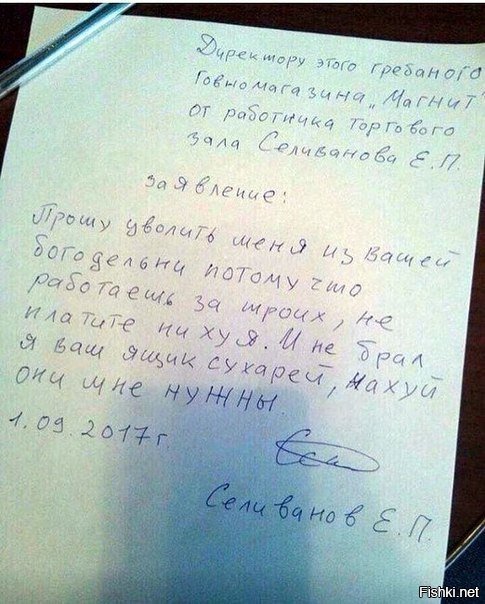 Директору этого гребаного
Говномагазина „Магнит"
от работника торгового
зала Селиванова Е.П.
заявление:
Прошу уволить меня из вашей
богодельни потому что
работаешь за троих, не
платите ни хуя. И не брал
я ваш ящик сухарей, нахуй
они мне нужны.
1.09.2017г.
Селиванов Е.П.
Fishki.net